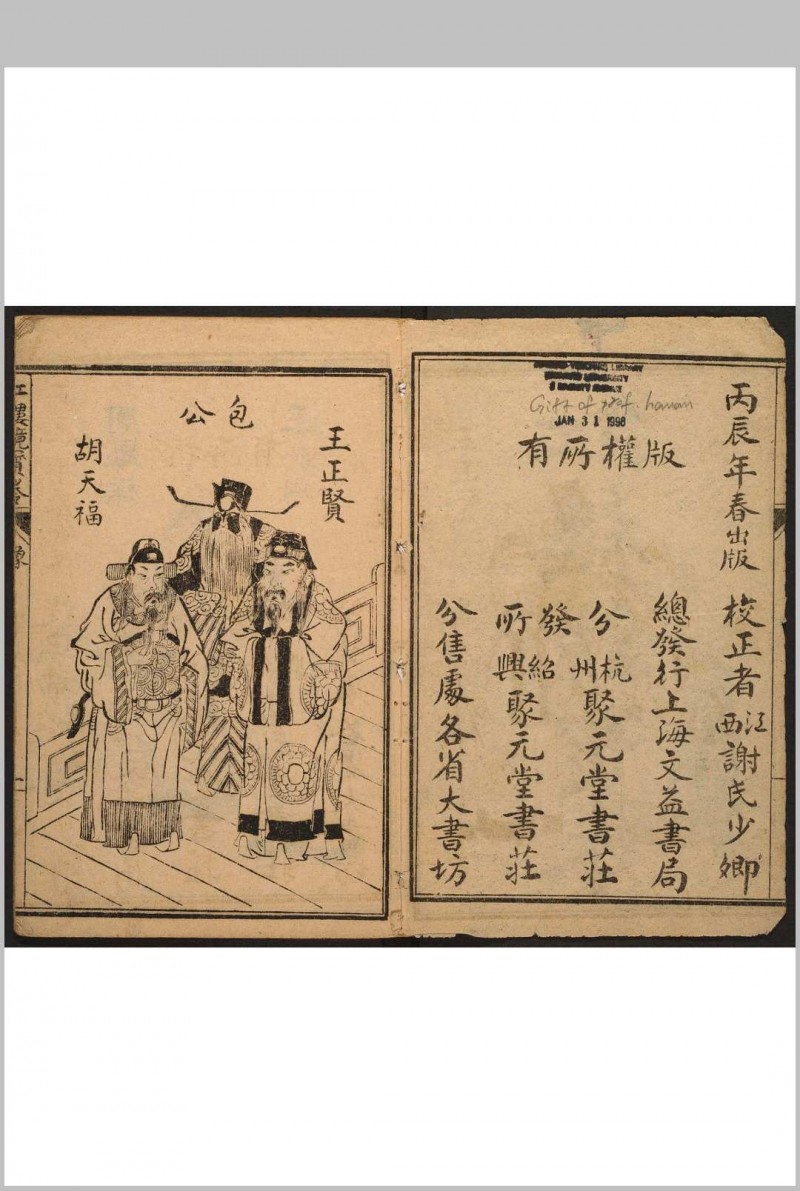 丙辰年春出版
校正者江西謝氏少卿
總發行上海文益書局
分發所
杭州聚元堂書莊
紹興聚元堂書莊
分售處各省大書坊
版權所有
Gift of Prof. Hanan
JAN 31 1998
王正賢
包公
胡天福
像